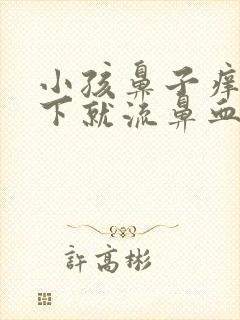 小孩鼻子痒
下就流鼻血
許高彬